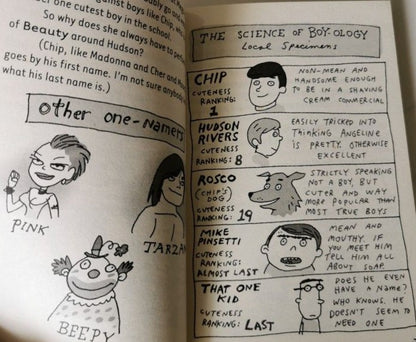 bably go and
against boys like Chip, w
er one cutest boy in the school.
So why does she always have to pe
of Beauty around Hudson?
(Chip, like Madonna and Cher and M
goes by his first name. I'm not sure anybody
what his last name is.)
other one-namers
PINK
TARZAN
BEEPY
THE SCIENCE OF BOY-OLOGY
Local Specimens
CHIP
CUTENESS
RANKING:
1
NON-MEAN AND
HANDSOME ENOUGH
TO BE IN A SHAVING
CREAM COMMERCIAL
HUDSON
RIVERS
CUTENESS
RANKING: 8
EASILY TRICKED INTO
THINKING ANGELINE
IS PRETTY. OTHERWISE
EXCELLENT
ROSCO
(CHIP'S
DOG)
CUTENESS
RANKING: 19
STRICTLY SPEAKING
NOT A BOY, BUT
CUTER AND WAY
MORE POPULAR THAN
MOST TRUE BOYS
MIKE
PINSETTI
CUTENESS
RANKING:
ALMOST LAST
MEAN AND
MOUTHY. IF
YOU MEET HIM
TELL HIM ALL
ABOUT SOAP.
THAT ONE
KID
CUTENESS
RANKING: LAST
DOES HE EVEN
HAVE A NAME?
WHO KNOWS. HE
DOESN'T SEEM TO
NEED ONE